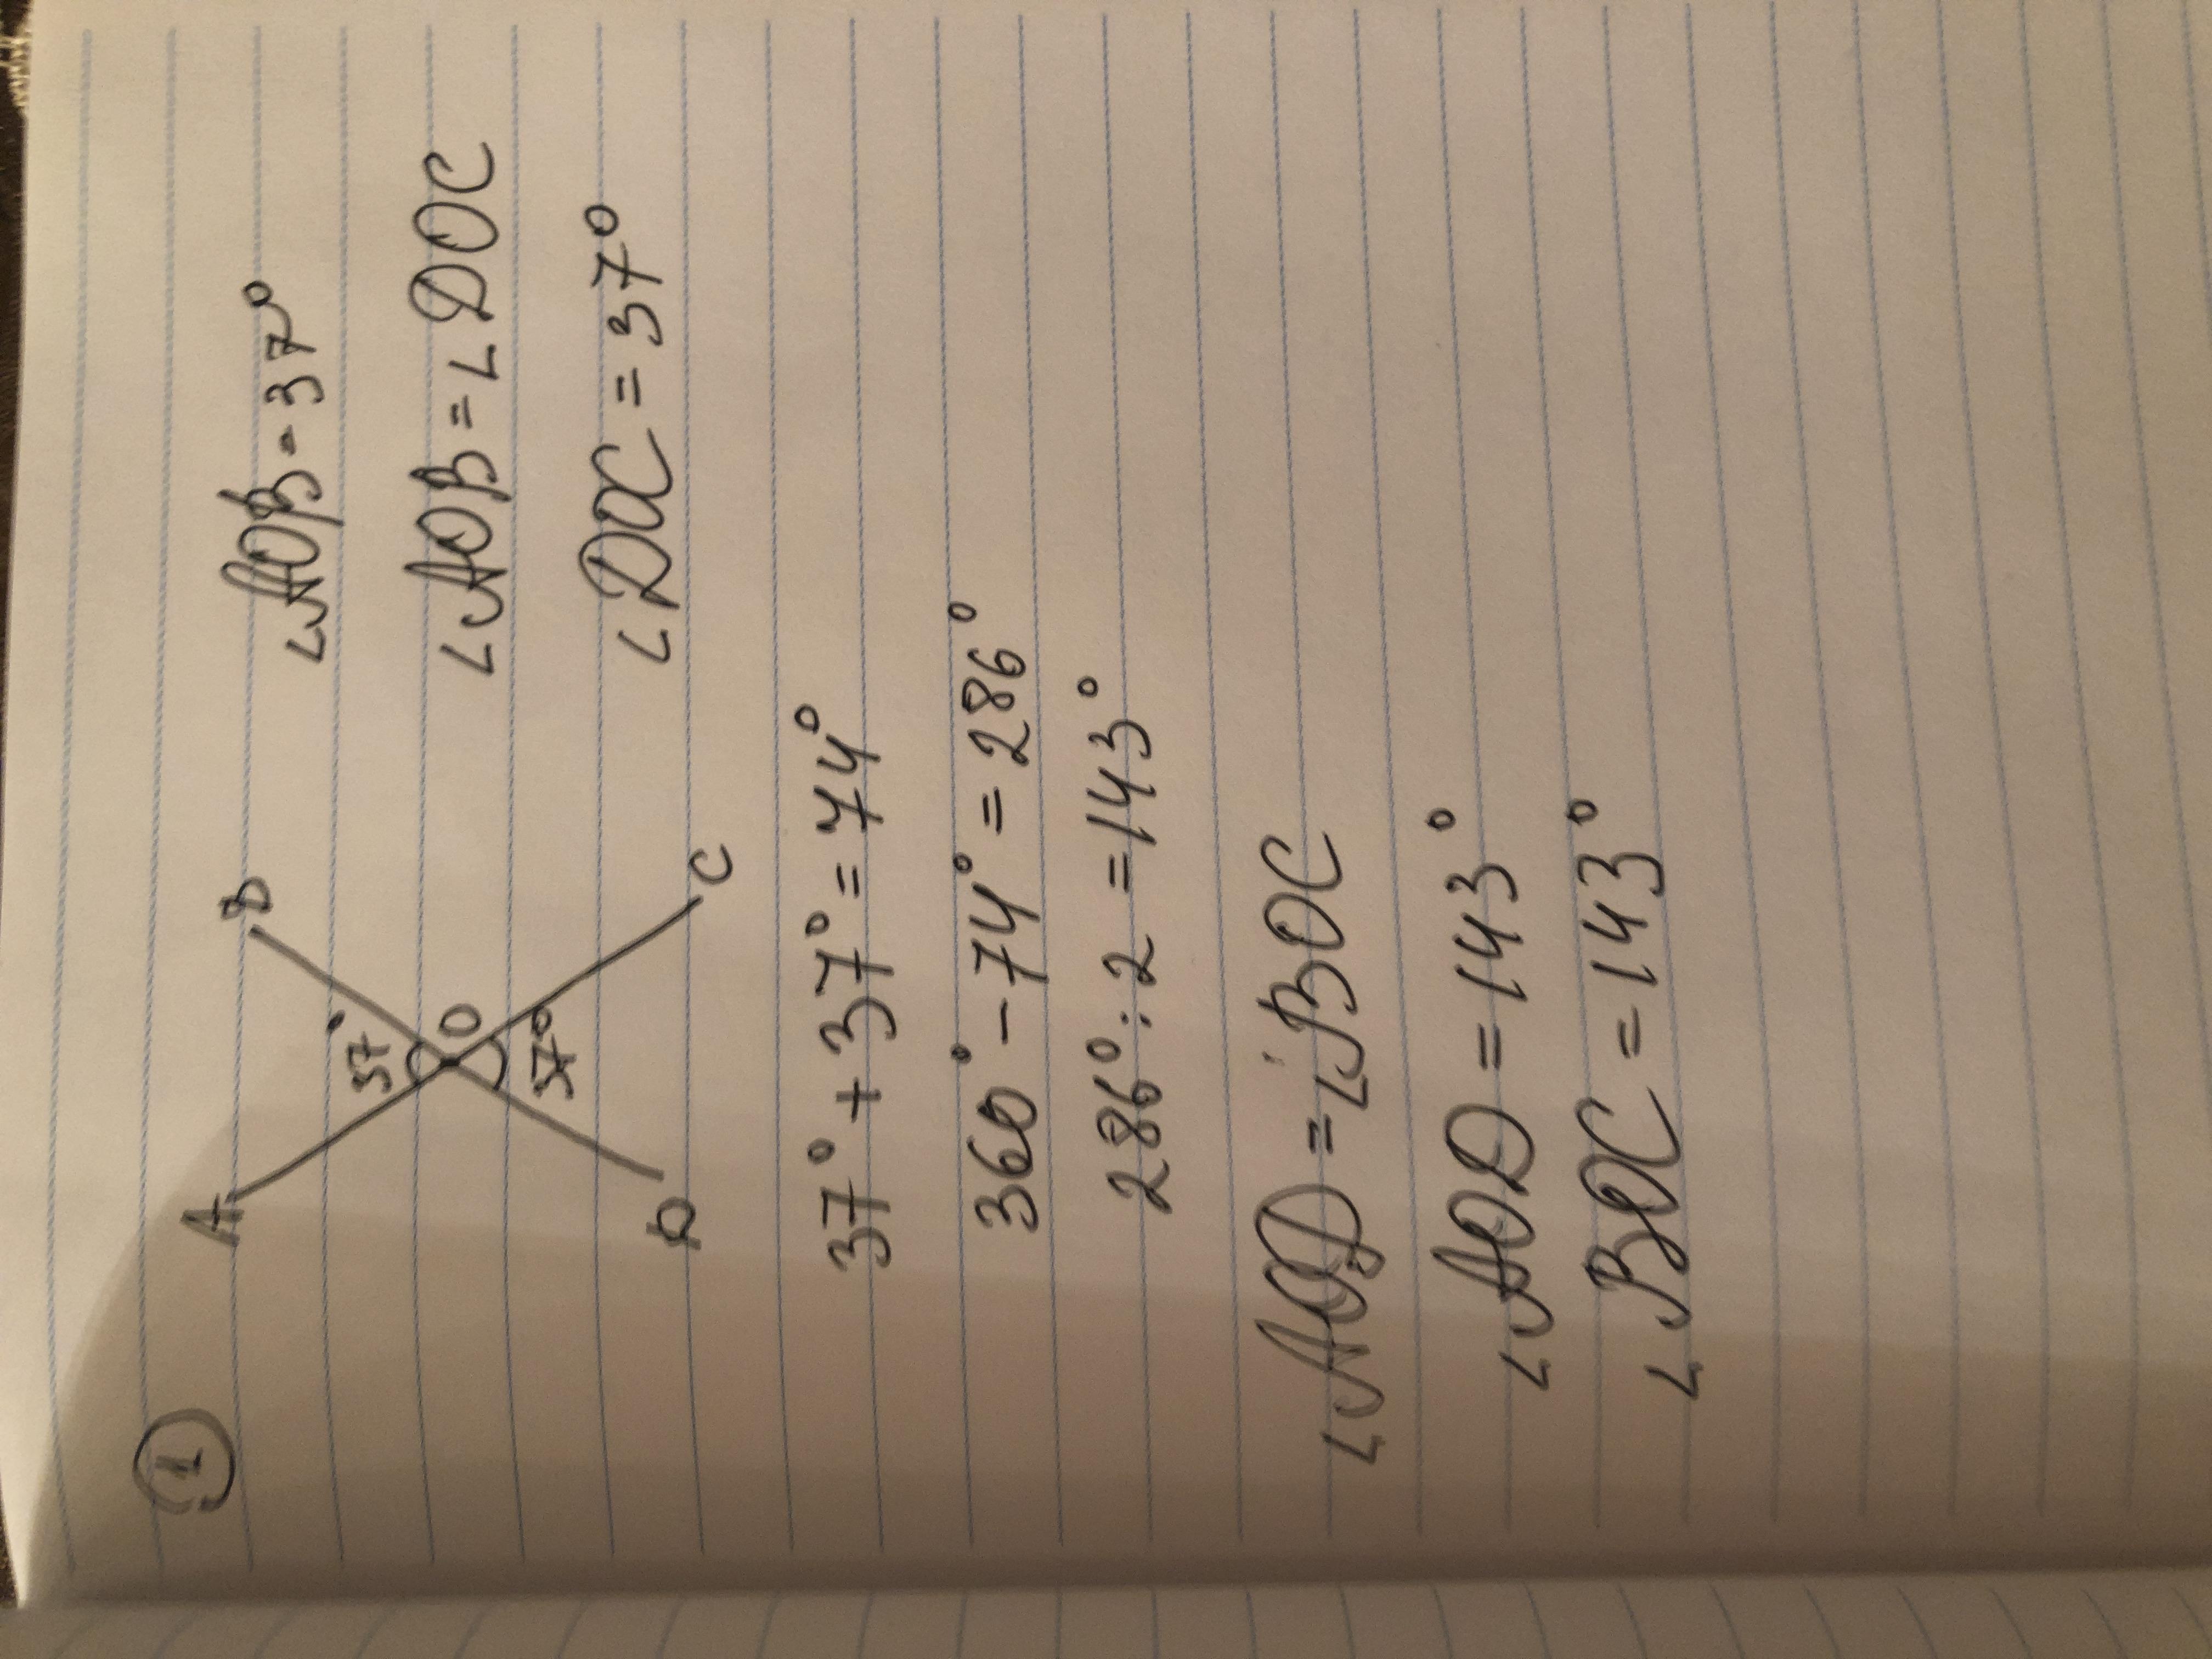 1
A B
37°
O
37°
D C
∠AOB = 37°
∠AOB = ∠DOC
∠DOC = 37°
37° + 37° = 74°
360° - 74° = 286°
286° : 2 = 143°
∠AOD = ∠BOC
∠AOD = 143°
∠BOC = 143°